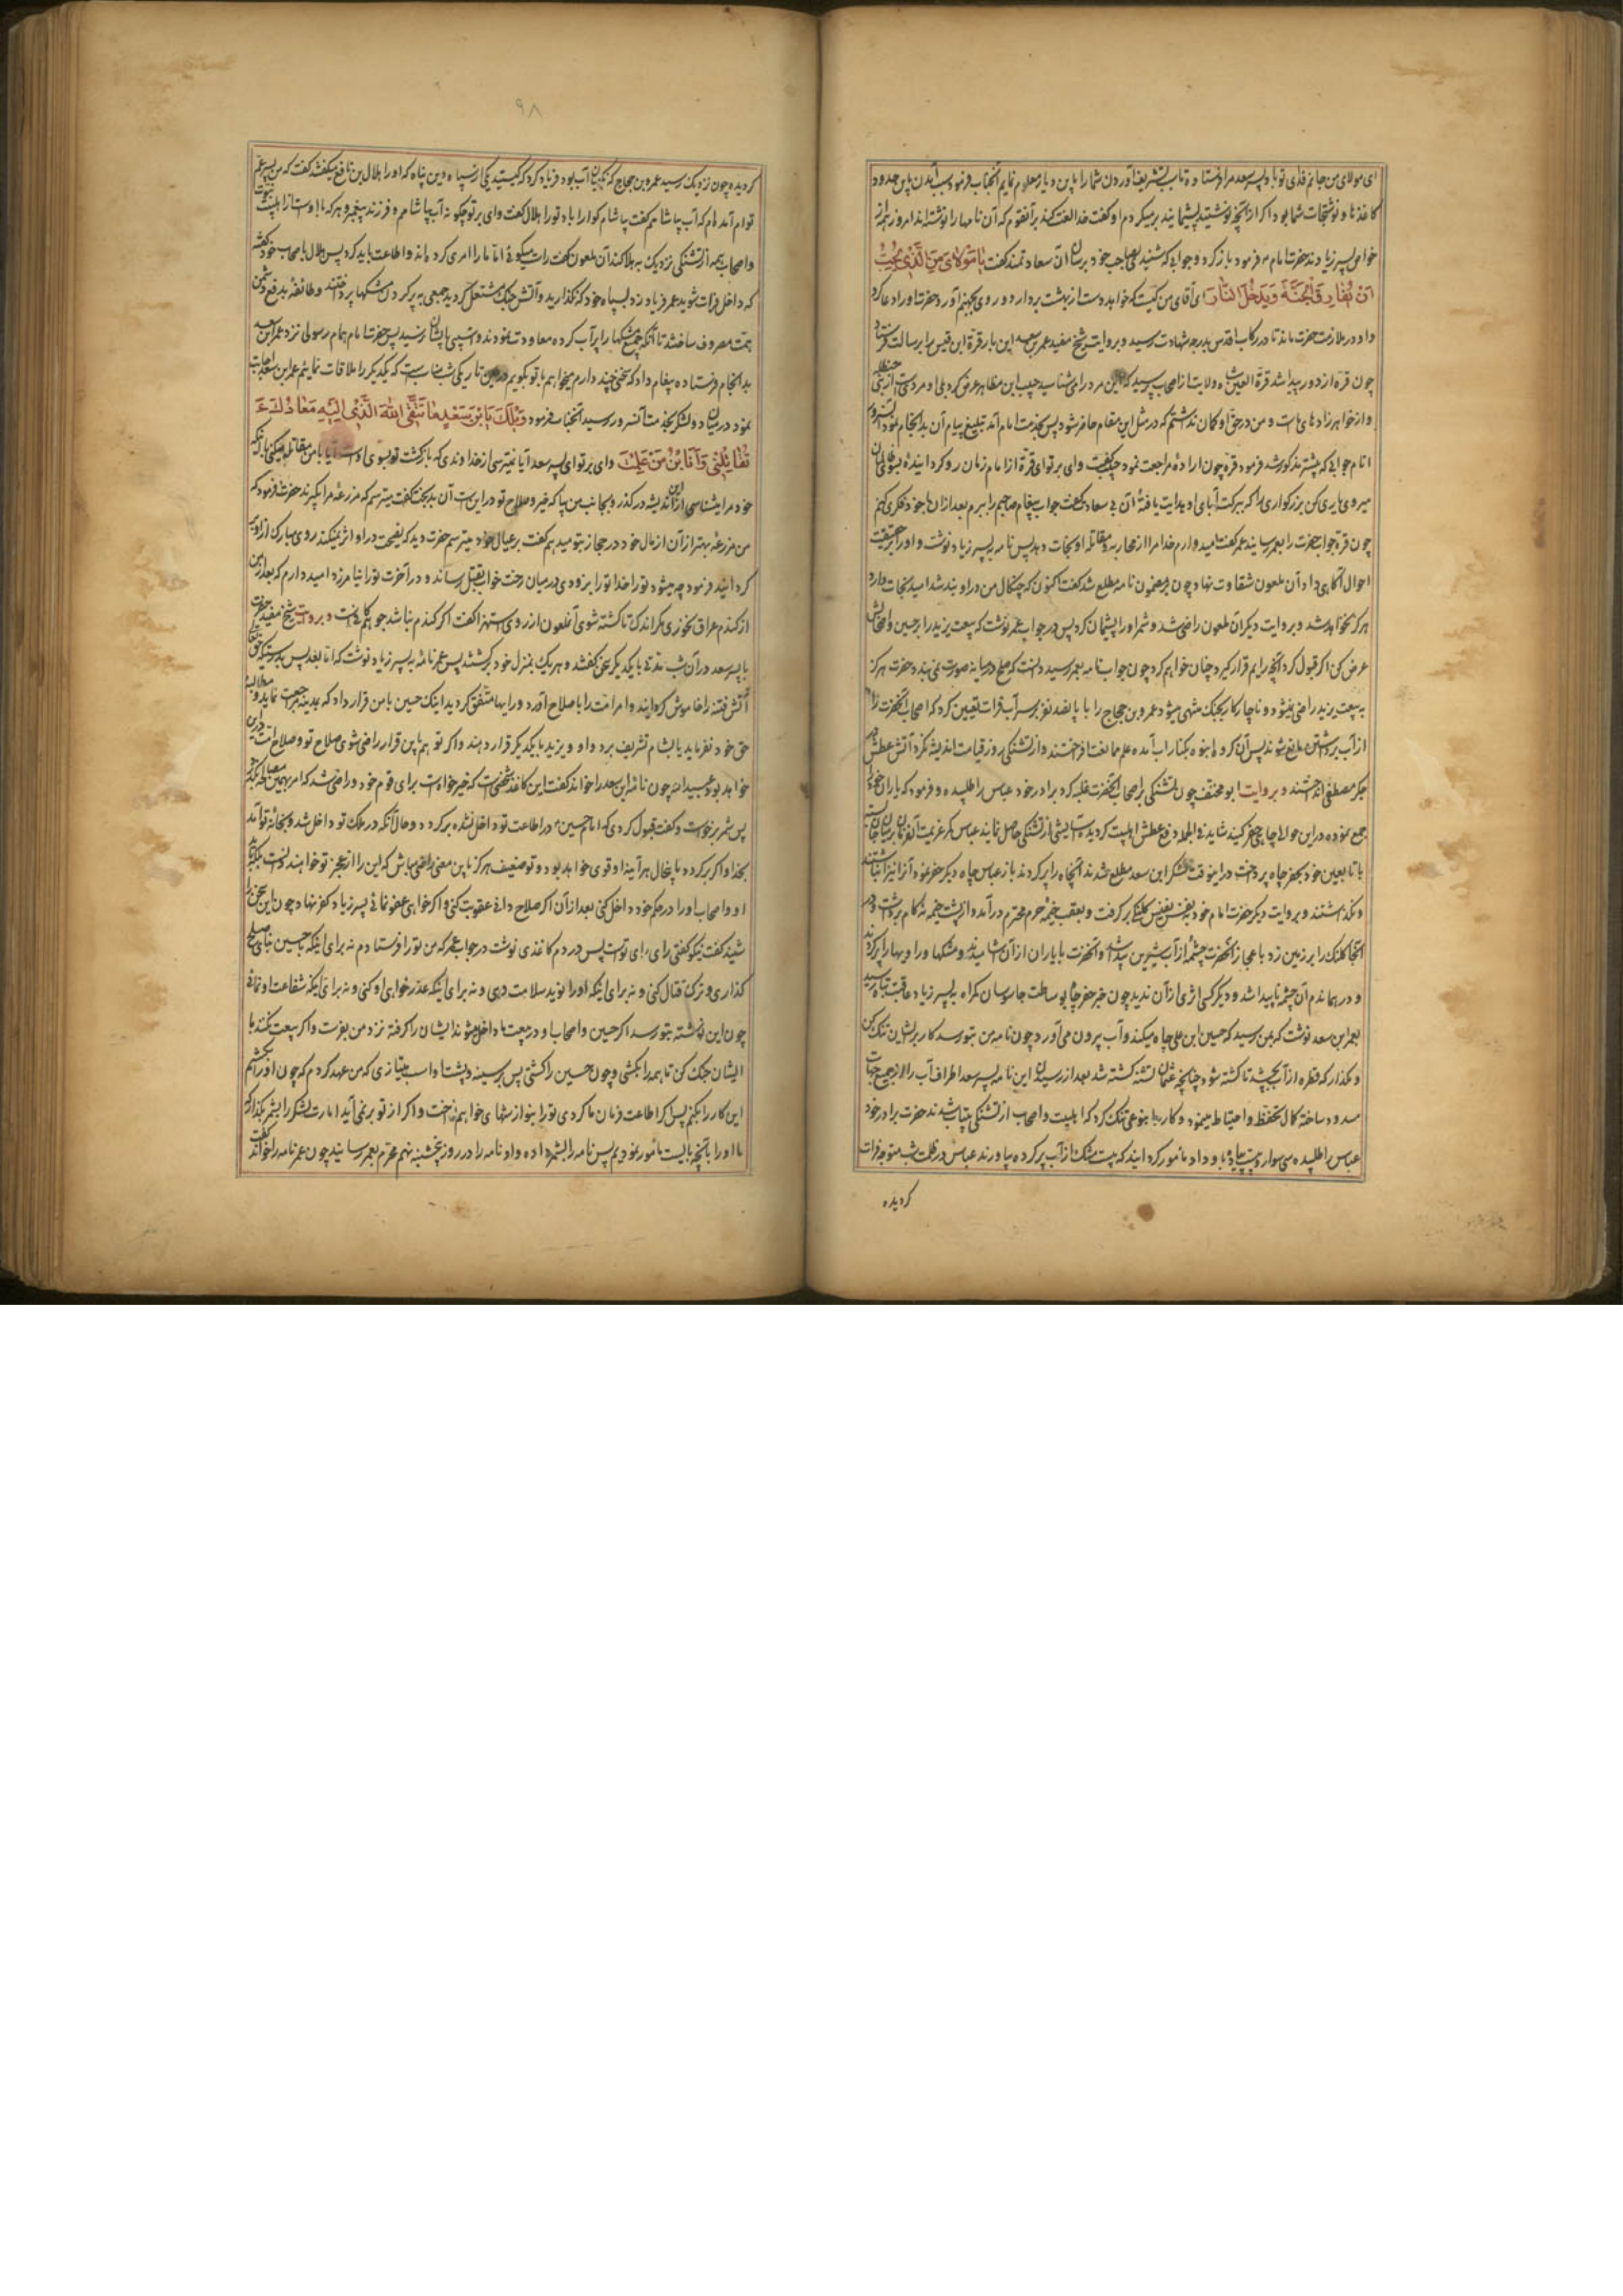 ای مولای من جانم فدای تو باد پسر سعد مرا فرستاده تا سبب تشریف آوردن شما را باین دیار معلوم نمایم آنجناب فرمود سبب آمدن باین حدود
کاغذها و نوشتجات شما بود اکر از آنچه نوشتید پشیمانید برمیکردم او کفت خدا لعنت کند بر آنقوم که آن نامها را نوشته اند امروز از
خواص پسر زیادند حضرت امام فرمود باز کرد و جوابی که شنیدی بصاحب خود برسان آن سعادتمند کفت یا مولای من الذی یحب
ان یفارق الجنة ویدخل النار ای آقای من کیست که خواهد دست از بهشت بردارد و روی بجهنم آورد حضرت او را دعا کرد
و او در ملازمت حضرت ماند تا در رکاب اقدس بدرجه شهادت رسید و بروایت شیخ مفید عمر بن سعد این بار قرة ابن قیس را برسالت فرستاد
چون قرة از دور پیدا شد قرة العین شاه ولایت از اصحاب پرسید که این مرد را می شناسید حبیب ابن مظاهر عرض کرد بلی او مردیست از بنی حنظله
و از خواهرزادهای ماست و من در حق او کمان نداشتم که در مثل این مقام حاضر شود پس بخدمت امام آمد تبلیغ پیام آن بد انجام نمود
امام جوابی که پیشتر مذکور شد فرمود قرة چون اراده مراجعت نمود حبیب کفت وای بر تو ای قرة از امام زمان رو کردانیده بسوی ظالمان
میروی یاری کن بزرکواری را که ببرکت آبای او هدایت یافته آن بی سعادت کفت جواب پیغام صاحبم را ببرم بعد از آن با خود فکری کنم
چون قرة جواب حضرت را بعمر رسانید عمر کفت امیدوارم خدا مرا از محاربه و مقاتله او نجات دهد پس نامه به پسر زیاد نوشت و او را بر حقیقت
احوال آکاهی داد آن ملعون شقاوت نهاد چون بر مضمون نامه مطلع شد کفت اکنون که چنکال من در او بند شد امید نجات دارد
هرکز نخواهد شد و بروایت دیکر آن ملعون راضی شد و شمر او را پشیمان کرد پس در جواب عمر نوشت که بیعت یزید را بر حسین و اصحابش
عرض کن اکر قبول کرد آنچه رایم قرار کیرد چنان خواهم کرد چون جواب نامه بعمر رسید دانست که صلح در میانه صورت نمی بندد حضرت هرکز
به بیعت یزید راضی نمیشود و ناچار کار بجنک منتهی میشود عمرو بن حجاج را با پانصد نفر بر سر آب فرات تعیین کرد که اصحاب آنحضرت را
از آب برداشتن مانع شوند پس آن کروه انبوه بکنار آب آمده علم مخالفت افراختند و از تشنکی روز قیامت اندیشه نکرد آتش عطش در
جکر مصطفی انداختند و بروایت ابو مخنف چون تشنکی بر اصحاب آنحضرت غلبه کرد برادر خود عباس را طلبیده و فرمود که یاران خود را
جمع نموده در این حوالی چاهی حفر کنید شاید فی الجمله دفع عطش اهلبیت کردیده آسایشی از تشنکی حاصل نمایند عباس
با تابعین خود بحفر چاه پرداخت در اینوقت لشکر ابن سعد مطلع شدند آنچاه را پر کردند باز عباس چاه دیکر حفر نمود آنرا نیز انباشتند
و نکذاشتند و بروایت دیکر حضرت امام خود بنفس نفیس کلنکی برکرفت و بعقب خیمه حرم محترم درآمد و از پشت خیمه نه کام برداشت و در
آنجا کلنک را بر زمین زد باعجاز آنحضرت چشمه از آب شیرین پیدا شد و آنحضرت با یاران از آن آب آشامیدند و مشکها و راویها را پر کردند
و در همان دم آن چشمه ناپیدا شد و دیکر کسی اثری از آن ندید چون خبر حفر چاه بوساطت جاسوسان کمراه به پسر زیاد عاقبت تباه رسید
بعمر ابن سعد نوشت که بمن رسید که حسین ابن علی چاه میکند و آب بیرون می آورد چون نامه من بتو رسد کار بر ایشان تنک کن
و مکذار که قطره از آب بچشد تا کشته شود چنانچه عثمان تشنه کشته شد بعد از رسیدن این نامه پسر سعد اطراف آب را از جمیع جهات
مسدود ساخته کمال تحفظ و احتیاط مینمود و کار را بنوعی تنک کرد که اهلبیت و اصحاب از تشنکی بیتاب شدند حضرت برادر خود
عباس را طلبیده سی سوار و بیست پیاده باو داد و مامور کردانید که بیست مشک از آب پر کرده بیاورند عباس در ظلمت شب متوجه فرات
کردیده
۹۸
کردید و چون نزدیک رسید عمرو بن حجاج که نکهبان آب بود فریاد کرد که کیستید یکی از سپاه دین پناه که او را هلال بن نافع میکفتند کفت که من پسر عم
توام آمده ام که آب بیاشامم کفت بیاشام کوارا باد تو را هلال کفت وای بر تو چکونه آب بیاشامم و فرزند پیغمبر و هر که با اوست از اهلبیت
و اصحاب همه از تشنکی نزدیک بهلاکتند آن ملعون کفت راست میکوئی اما ما را امری کرده اند و اطاعت باید کرد پس هلال باصحاب خود کفت
که داخل فرات شوید عمر فریاد زد بسپاه خود که نکذارید و آتش جنک مشتعل کردید جمعی به پر کردن مشکها پرداختند و طائفه بدفع دشمن
همت مصروف ساختند تا آنکه جمیع مشکها را پر آب کرده معاودت نمودند و آسیبی بایشان نرسید پس حضرت امام همام رسولی نزد عمر ابن سعد
بد انجام فرستاده پیغام داد که سخنی چند دارم میخواهم با تو بکویم در این تاریکی شب مناسب است که یکدیکر را ملاقات نمائیم عمر ابن سعد اجابت
نمود در میان دو لشکر بخدمت آنسرور رسید آنجناب فرمود ویلک یابن سعد اما تتقی الله الذی الیه معادک
تقاتلنی وانا بن من علمت وای بر تو ای پسر سعد آیا نمیترسی از خداوندی که بازکشت تو بسوی اوست آیا با من مقاتله میکنی با آنکه
خود مرا میشناسی از این اندیشه درکذر و بجانب من بیا که خیر و صلاح تو در این است آن بدبخت کفت میترسم که مزرعه مرا بکیرند حضرت فرمود که
من مزرعه بهتر از آن از مال خود در حجاز بتو میدهم کفت بر عیال خود میترسم حضرت دید که نصیحت در او اثر نمیکند روی مبارک از او
کردانید فرمود چه میشود تو را خدا تو را بزودی در میان رخت خواب بقتل رساند و در آخرت تو را نیامرزد امیدوارم که بعد از من
از کندم عراق نخوری مکر اندکی تا کشته شوی آنملعون از روی استهزا کفت اکر کندم نباشد جو هم کافیست و بروایت شیخ مفید حضرت
با پسر سعد در آن شب مدتی با یکدیکر سخن کفتند و هر یک بمنزل خود برکشتند پس عمر نامه به پسر زیاد نوشت که اما بعد پس بدرستیکه
آتش فتنه را خاموش کردانید و امر امت را باصلاح آورد و رایها متفق کردید اینک حسین با من قرار داد که بمدینه مراجعت نماید
حق خود نفرماید یا بشام تشریف برد و او و یزید با یکدیکر قرار دهند و اکر تو هم باین قرار راضی شوی صلاح تو و صلاح امت در این
خواهد بود عبیدالله چون نامه ابن سعد را خواند کفت این کاغذ شخصی است که خیرخواه است برای قوم خود و راضی شد که امر بهمین
پس شمر برخواست و کفت قبول کردی که امام حسین در اطاعت تو داخل نشده برکردد و حال آنکه در ملک تو داخل شد و بخانه تو آمد
بخدا و اکر برکردد باینحال هر آینه او قوی خواهد بود و تو ضعیف هرکز باین معنی راضی مباش که این را از عجز تو خواهند دانست بلکه
او و اصحاب او را در حکم خود داخل کنی بعد از آن اکر صلاح دانی عقوبت کنی و اکر خواهی عفو نمائی پسر زیاد کفر نهاد چون این سخن را
شنید کفت نیکو کفتی رای رای تو است پس در دم کاغذی نوشت در جواب عمر که من تو را فرستادم نه برای اینکه با حسین بنای صلح
کذاری و ترک قتال کنی و نه برای اینکه او را نوید سلامت دهی و نه برای اینکه عذرخواهی او کنی و نه برای اینکه شفاعت او نمائی
چون این نوشته بتو رسد اکر حسین و اصحاب او در بیعت ما داخل میشوند ایشان را کرفته نزد من بفرست و اکر بیعت نکنند با
ایشان جنک کن تا همه را بکشی و چون حسین را کشتی پس بر سینه و پشت او اسب بتازی که من عهد کردم که چون او را بکشم
این کار را بکنم پس اکر اطاعت فرمان ما کردی تو را بنوازشهای خواهم نواخت و اکر از تو بر نمی آید امارت لشکر را بشمر بکذار که
ما او را بآنچه بایست مامور نمودیم پس نامه را بشمر داده و او نامه را در روز پنجشنبه نهم محرم بعمر رسانید چون عمر نامه را خواند کفت